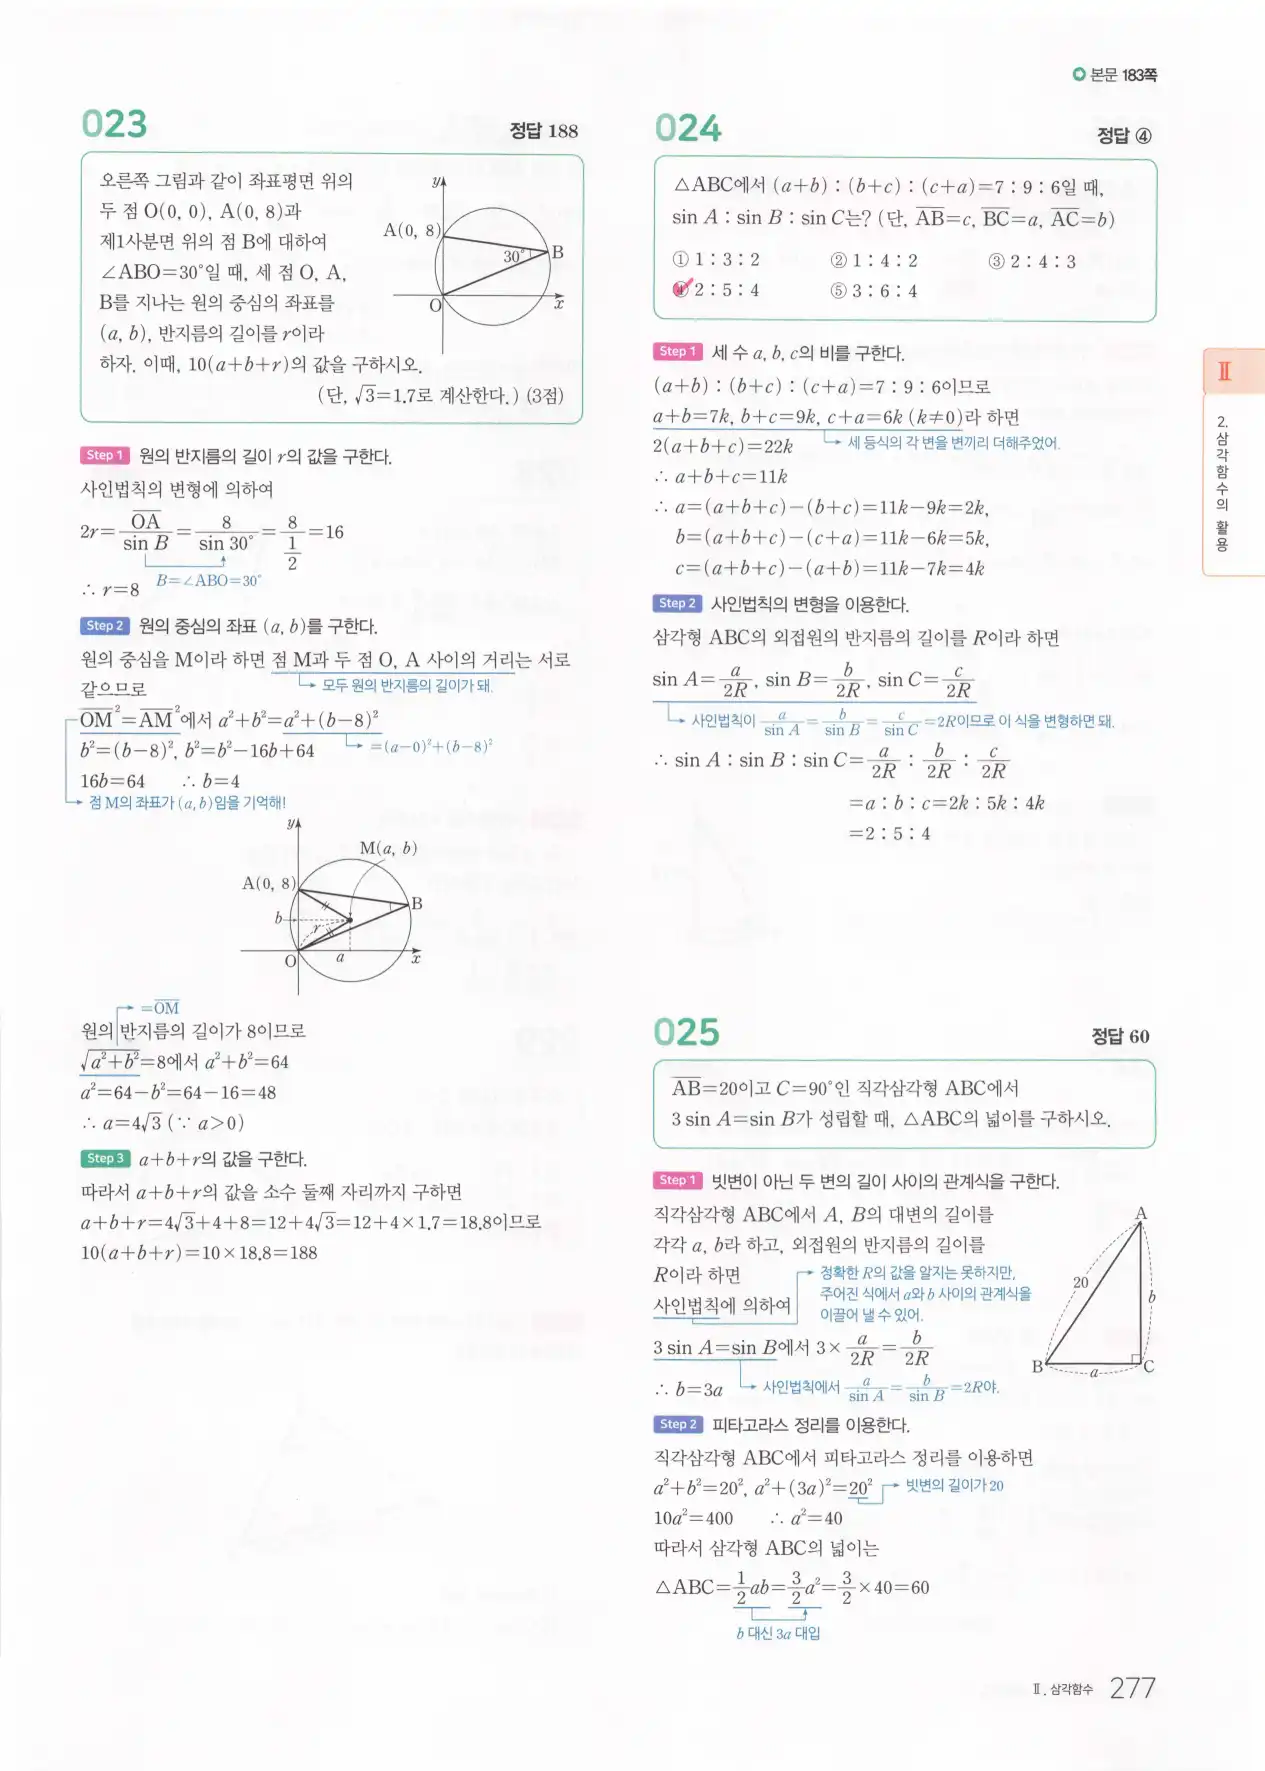 본문 183쪽
023
정답 188
오른쪽 그림과 같이 좌표평면 위의
두 점 O(0, 0), A(0, 8)과
제1사분면 위의 점 B에 대하여
∠ABO=30°일 때, 세 점 O, A,
B를 지나는 원의 중심의 좌표를
(a, b), 반지름의 길이를 r이라
하자. 이때, 10(a+b+r)의 값을 구하시오.
(단, √3=1.7로 계산한다.) (3점)
y
A(0, 8)
30°
B
O
x
Step 1 원의 반지름의 길이 r의 값을 구한다.
사인법칙의 변형에 의하여
2r=OA/sin B=8/sin 30°=8/(1/2)=16
B=∠ABO=30°
∴ r=8
Step 2 원의 중심의 좌표 (a, b)를 구한다.
원의 중심을 M이라 하면 점 M과 두 점 O, A 사이의 거리는 서로
같으므로
모두 원의 반지름의 길이가 돼.
OM²=AM²에서 a²+b²=a²+(b-8)²
b²=(b-8)², b²=b²-16b+64
=(a-0)²+(b-8)²
16b=64 ∴ b=4
점 M의 좌표가 (a, b)임을 기억해!
y
M(a, b)
A(0, 8)
B
b
r
O
a
x
=OM
원의 반지름의 길이가 8이므로
√(a²+b²)=8에서 a²+b²=64
a²=64-b²=64-16=48
∴ a=4√3 (∵ a>0)
Step 3 a+b+r의 값을 구한다.
따라서 a+b+r의 값을 소수 둘째 자리까지 구하면
a+b+r=4√3+4+8=12+4√3=12+4×1.7=18.8이므로
10(a+b+r)=10×18.8=188
024
정답 ④
△ABC에서 (a+b) : (b+c) : (c+a)=7 : 9 : 6일 때,
sin A : sin B : sin C는? (단, AB=c, BC=a, AC=b)
① 1 : 3 : 2 ② 1 : 4 : 2 ③ 2 : 4 : 3
④ 2 : 5 : 4 ⑤ 3 : 6 : 4
Step 1 세 수 a, b, c의 비를 구한다.
(a+b) : (b+c) : (c+a)=7 : 9 : 6이므로
a+b=7k, b+c=9k, c+a=6k (k≠0)라 하면
2(a+b+c)=22k
세 등식의 각 변을 변끼리 더해주었어.
∴ a+b+c=11k
∴ a=(a+b+c)-(b+c)=11k-9k=2k,
b=(a+b+c)-(c+a)=11k-6k=5k,
c=(a+b+c)-(a+b)=11k-7k=4k
Step 2 사인법칙의 변형을 이용한다.
삼각형 ABC의 외접원의 반지름의 길이를 R이라 하면
sin A=a/2R, sin B=b/2R, sin C=c/2R
사인법칙이 a/sin A=b/sin B=c/sin C=2R이므로 이 식을 변형하면 돼.
∴ sin A : sin B : sin C=a/2R : b/2R : c/2R
=a : b : c=2k : 5k : 4k
=2 : 5 : 4
025
정답 60
AB=20이고 C=90°인 직각삼각형 ABC에서
3 sin A=sin B가 성립할 때, △ABC의 넓이를 구하시오.
Step 1 빗변이 아닌 두 변의 길이 사이의 관계식을 구한다.
직각삼각형 ABC에서 A, B의 대변의 길이를
각각 a, b라 하고, 외접원의 반지름의 길이를
R이라 하면
사인법칙에 의하여
정확한 R의 값을 알지는 못하지만,
주어진 식에서 a와 b 사이의 관계식을
이끌어 낼 수 있어.
3 sin A=sin B에서 3×a/2R=b/2R
∴ b=3a
사인법칙에서 a/sin A=b/sin B=2R야.
A
20
b
B
a
C
Step 2 피타고라스 정리를 이용한다.
직각삼각형 ABC에서 피타고라스 정리를 이용하면
a²+b²=20², a²+(3a)²=20²
빗변의 길이가 20
10a²=400 ∴ a²=40
따라서 삼각형 ABC의 넓이는
△ABC=1/2ab=3/2a²=3/2×40=60
b 대신 3a 대입
Ⅱ
2. 삼각함수의 활용
Ⅱ. 삼각함수 277